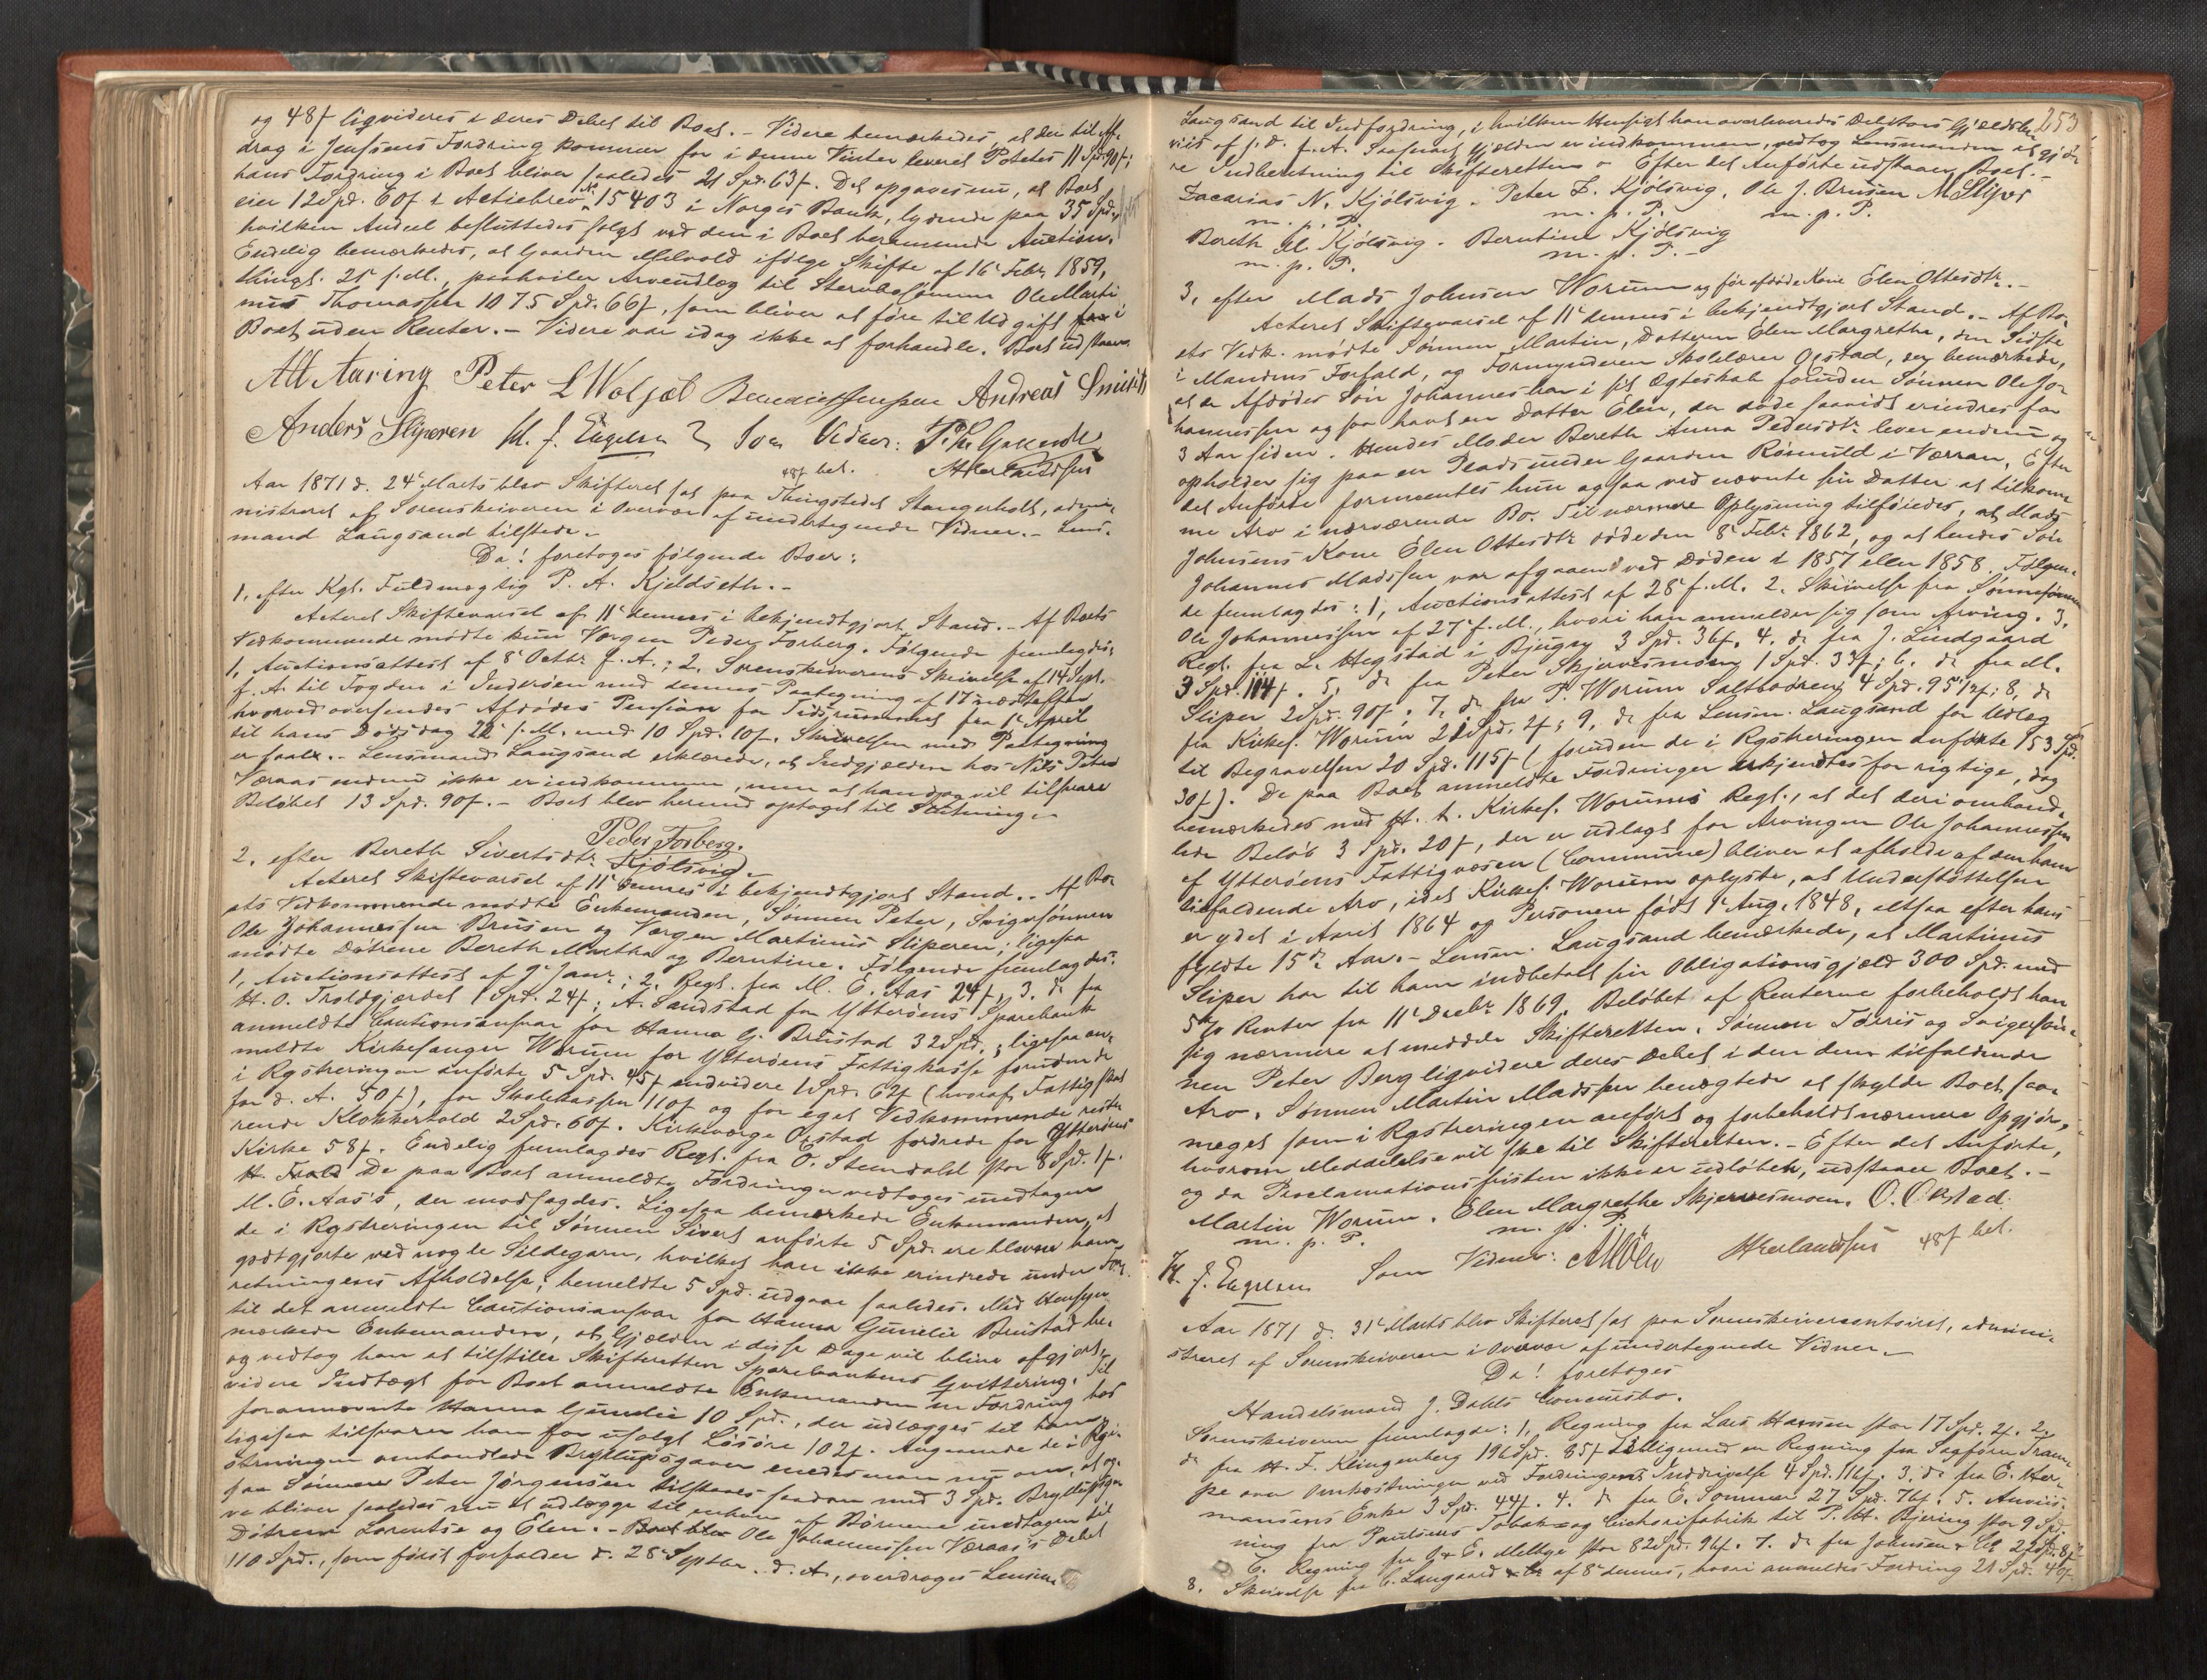 og 48 f ligvideres i deres Debet til Boet. – Videre bemærkedes, at der til Af-
drag i Jenssens Fordring kommer for i denne Vinter leveret Potetes 11 Spd. 90 f;
hans Fordring i Boet bliver saaledes 21 Spd. 63 f. Det opgaves nu, at Boet
eier 12 Spd. 60 f i Actiebrev No 15403 i Norges Bank, lydende paa 35 Spd.,
hvilken Andeel besluttedes solgt ved den i Boet berammede Auction.
Endelig bemærkedes, at Gaarden Melvold ifølge Skifte af 16 Febr. 1859,
thingl. 21 s. M., paahviler Arveudlæg til Stervbosønnen Ole Marti
nus Thomassen 1075 Spd. 66 f, som bliver at føre til Udgift i
Boet uden Renter. – Videre var idag ikke at forhandle. Boet udstaaer.
Peter L Woljæl Andreas
Anders Sliperen M. J. Engelsen Som Vidner:
48 f bet.
Aar 1871 d. 24 Marts blev Skifteret sat paa Thingstedet Stangerholt, admi-
nistreret af Sorenskriveren i Overvær af undertegnede Vidner. – Lens-
mand Laugsand tilstede. –
Da! foretoges følgende Boer:
1, efter Kgl. Fuldmægtig P. A. Kjeldseth. –
Acteret Skiftevarsel af 11 dennes i bekjendtgjort Stand. – Af Boets
Vedkommende mødte kun Værgen Peder Forberg. Følgende fremlagdes:
1, Auctionsattest af 8 Octbr. f. A.; 2, Sorenskriverens Skrivelse af 14 Sept.
f. A. til Fogden i Inderøen med dennes Paategning af 17 næstefter
hvorved oversendes Afdødes Pension for Tidsrummet fra 1 April
til hans Dødsdag 22 s. M. med 10 Spd. 10 f. Skrivelsen med Paategning
er saal. – Lensmand Laugsand erklærede, at Indgjælden hos Nils Peter
Væraas endnu ikke er indkommen, men at han dog vil tilsvare
Beløbet 13 Spd. 90 f. – Boet blev hermed optaget til Slutning. –
Peder Forberg.
2, efter Bereth Sivertsdtr. Kjølsvig. –
Acteret Skiftevarsel af 11 dennes i bekjendtgjort Stand. – Af Bo-
ets Vedkommende mødte Enkemanden, Sønnen Peter, Svigersønnen
Ole Johannessen Brusen og Værgen Martinus Sliperen; ligesaa
mødte Døtrene Bereth Martha og Berntine. Følgende fremlagdes:
1, Auctionsattest af 9 Janr.; 2, Regl. fra M. E. Aas 24 f; 3, do fra
H. O. Troldgjærdet 1 Spd. 24 f; A. Sandstad for Ytterøens Sparebank
anmeldte Cautionsansvar for Hanna G. Brustad 32 Spd.; ligesaa an-
meldte Kirkesanger Worum for Ytterøens Fattigkasse foruden de
i Rgstreringen anførte 5 Spd. 45 f endvidere 1 Spd. 62 f (hvoraf Fattigskat
for d. A. 50 f), for Skolekassen 110 f og for eget Vedkommende reste-
rende Klokkertold 2 Spd. 60 f. Kirkeværge Ørstad fordrede for Ytterøens
Kirke 58 f. Endelig fremlagdes Regl. fra O. Steendahl stor 8 Spd. 1 f.
De paa Boet anmeldte Fordringer vedtoges undtagen
M. E. Aas's, der modsagdes. Ligesaa bemærkede Enkemanden, at
de i Rgstreringen til Sønnen Sivert anførte 5 Spd. ere blevne ham
godtgjorte ved nogle Sildegarn, hvilket han ikke erindrede under For-
retningens Afholdelse; bemeldte 5 Spd. udgaae saaledes. Med Hensyn
til det anmeldte Cautionsansvar for Hanna Gunelie Brustad be-
mærkede Enkemanden, at Gjælden i disse Dage vil blive afgjort,
og vedtog han at tilstille Skifteretten Sparebankens Qvittering. Til
videre Indtægt for Boet anmeldte Enkemanden en Fordring hos
forannævnte Hanna Gunelie 10 Spd., der udlægges til ham;
ligesaa tilsvarer han for usolgt Løsøre 102 f. Angaaende de i Rgi-
streringen omhandlede Bryllupsgaver enedes man nu om, at og-
saa Sønnen Peter Jørgensen tilstaaes saadan med 3 Spd. Bryllupsga-
ve bliver saaledes nu at udlægge til enhver af Børnene undtagen til
Døtrene Lorentse og Elen. – Ole Johannessen Væraas's Debet
110 Spd., som først forfalder d. 28 Septbr. d. A., overdroges Lensm.
253
Laugsand til Indfordring, i hvilken Hensigt han overleveredes Debitors Gjældsbe-
viis af s. D. f. A. Saasnart Gjælden er indkommen, vedtog Lensmanden at gjø-
re Indberetning til Skifteretten. – Efter det Anførte udstaaer Boet. –
Zacarias N. Kjølsvig. Peter Z. Kjølsvig. Ole J. Brusen M Sliper
m. p. P. m. p. P. m. p. P.
Bereth M. Kjølsvig. Berntine Kjølsvig
m. p. P. m. p. P. –
3, efter Mads Johnsen Worum og før afdøde Kone Elen Ottesdtr. –
Acteret Skiftevarsel af 11 dennes i bekjendtgjort Stand. – Af Bo-
ets Vedk. mødte Sønnen Martin, Datteren Elen Margrethe, den Sidste
i Mandens Forfald, og Formynderen Skolelærer Ørstad, der bemærkede,
at de Afdødes Søn Johannes har i sit Ægteskab foruden Sønnen Ole Jo-
hannessen ogsaa havt en Datter Elen, der døde saavidt erindres for
3 Aar siden. Hendes Moder Bereth Anna Pedersdtr. lever endnu og
opholder sig paa en Plads under Gaarden Rømuld i Værran. Efter
det Anførte formeentes hun ogsaa ved nævnte sin Datter at tilkom-
me Arv i nærværende Bo. Til nærmere Oplysning tilføiedes, at Mads
Johnsens Kone Elen Ottesdtr. døde den 8 Febr. 1862, og at hendes Søn
Johannes Madssen var afgaaen ved Døden i 1857 eller 1858. Følgen-
de fremlagdes: 1, Auctionsattest af 28 f. M. 2. Skrivelse fra Sønnesønnen
Ole Johannessen af 27 f. M., hvori han anmelder sig som Arving. 3,
Regl. fra L. Hegstad i Bjugn 3 Spd. 36 f. 4, do fra J. Lindgaard
3 Spd. 114 f. 5, do fra Peter Skjervesmoen 1 Spd. 33 f; 6, do fra M.
Sliper 2 Spd. 90 f; 7, do fra P. Worum Saltboðren 4 Spd. 95 1/2 f; 8, do
fra Kirkes. Worum 21 Spd. 4 f; 9, do fra Lensm. Laugsand for Udlæg
til Begravelsen 20 Spd. 115 f (foruden de i Rgstreringen anførte 153 Spd.
30 f). De paa Boet anmeldte Fordringer erkjendtes for rigtige, dog
bemærkedes med H. t. Kirkes. Worums Regl., at det deri omhand-
lede Beløb 3 Spd. 20 f, der er udlagt for Arvingen Ole Johannessen
af Ytterøens Fattigvæsen (Commune) bliver at afholde af den ham
tilfaldende Arv, idet Kirkes. Worum oplyste, at Understøttelsen
er ydet i April 1864 og Personen født 1 Aug. 1848, altsaa efter hans
fyldte 15de Aar. – Lensm. Laugsand bemærkede, at Martinus
Sliper har til ham indbetalt sin Obligationsgjæld 300 Spd. med
5 % Renter fra 11 Decbr. 1869. Beløbet af Renterne forbeholdt han
sig nærmere at meddele Skifteretten. Sønnen Tørris og Svigersøn-
nen Peter Berg ligvidere deres Debet i den dem tilfaldende
Arv. Sønnen Martin Madssen benægtede at skylde Boet saa-
meget som i Rgstreringen anført og forbeholdt nærmere Opgjør,
hvorom Meddelelse vil ske til Skifteretten. – Efter det Anførte,
og da Proclamationsfristen ikke er udløben, udstaaer Boet. –
Martin Worum. Elen Margrethe Skjervesmoen. O. Ørstad
m. p. P. m. p. P.
M. J. Engelsen Som Vidner: 48 f bet.
Aar 1871 d. 31 Marts blev Skifteret sat paa Sorenskrivercontoiret, admini-
streret af Sorenskriveren i Overvær af undertegnede Vidner. –
Da! foretoges
Handelsmand J. Dahls Concursbo.
Sorenskriveren fremlagde: 1, Regning fra Lars Hansen stor 17 Spd. 2 f. 2,
do fra H. F. Klingenberg 196 Spd. 85 f tilligemed en Regning fra Sagfører
over Omkostninger ved Fordringens Inddrivelse 4 Spd. 116 f. 3, do fra E. Her-
mansens Enke 3 Spd. 44 f. 4. do fra E. Sommer 27 Spd. 76 f. 5. Anviis-
ning fra Paulsens Tobak- og Cichorifabrik til P. M. Bjering stor 9 Spd.
6. Regning fra stor 82 Spd. 96 f. 7. do fra Johnsen & Co
8. Skrivelse fra C. Laugaard af 8 dennes, hvori anmeldes Fordring 21 Spd. 40 f